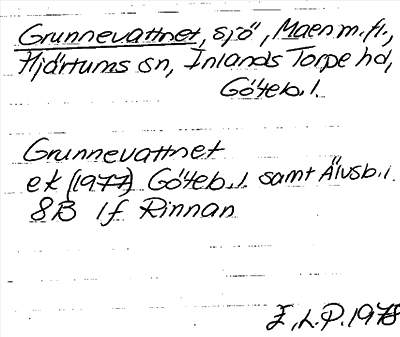 Grunnevattnet, sjö, Maen m.fl.,
Hjärtums sn, Inlands Torpe hd,
Göteb.l.
Grunnevattnet
ek (1977) Göteb.l. samt Älvsb.l.
8B 1f Rinnan
E.L.P. 1978